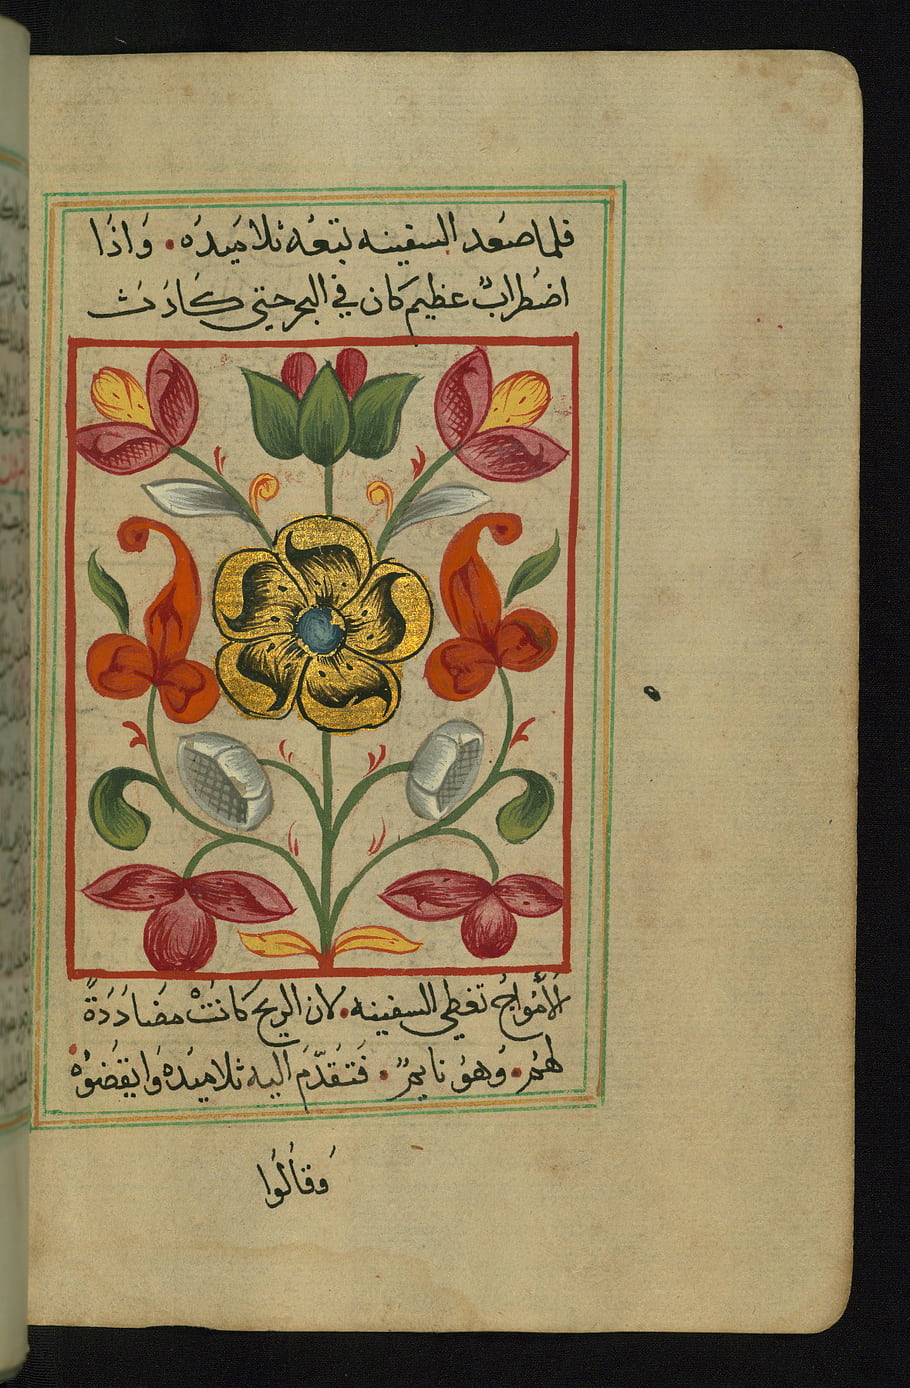 فلما صَعَد السفينه تبَعَه ثلاميدَه. وَاذَا
اضطرابٌ عظيم كان في البحر حتي كَادَث
الأموَاجُ تغطي السفينه. لان الريح كانَتْ مضادَدَةً
لهُم. وَهوُ نايمٌ. فَتقَدّمَ اليه ثلاميَدَهُ وَايقضوُهْ
وَقالُوا